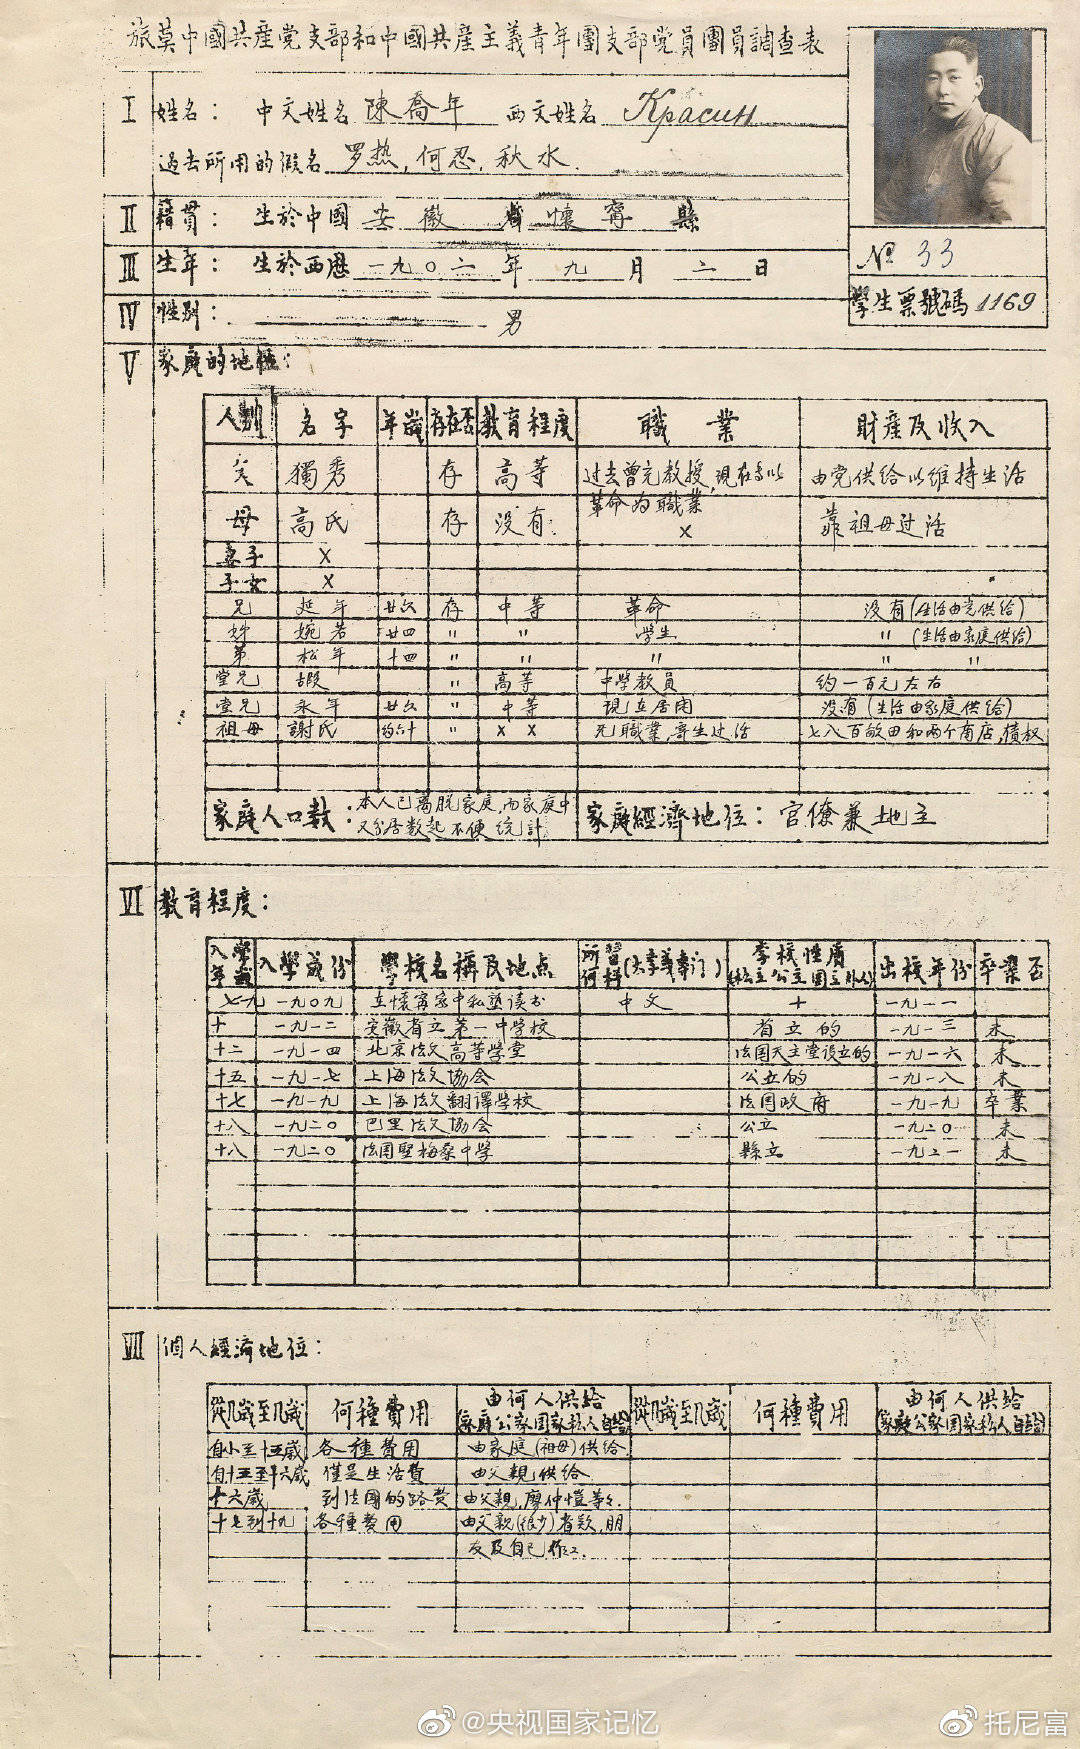 旅莫中國共産党支部和中國共産主義青年團支部党員團員調查表
I 姓名： 中文姓名 陳喬年 西文姓名 Красин
過去所用的假名 罗热，何忍，秋水．
II 籍貫： 生於中國 安徽 省 懷寧 縣
III 生年： 生於西歷 一九〇二 年 九 月 二 日
№ 33
IV 性别： 男
學生票號碼 1169
V 家庭的地位：
人别 名字 年歲 存在否 教育程度 職業 財産及收入
父 獨秀 存 高等 过去曾充教授，現在专以革命为職業 由党供给以维持生活
母 高氏 存 没有 × 靠祖母过活
妻子 ×
子女 ×
兄 延年 廿六 存 中等 革命 没有（生活由党供给）
姊 婉若 廿四 〃 〃 学生 〃（生活由家庭供给）
弟 松年 十四 〃 〃 〃 〃 〃
堂兄 遐 〃 高等 中學教員 约一百元左右
堂兄 永年 廿六 〃 中等 現在居闲 没有（生活由家庭供给）
祖母 謝氏 约六十 〃 × × 无職業，寄生过活 七八百畝田和两个商店，債权
家庭人口數： 本人已离脱家庭，而家庭中又分居数起不便统計 家庭經濟地位： 官僚兼地主
VI 教育程度：
入學年歲 入學歲份 學校名稱及地点 所習何科 學校性质 出校年份 卒業否
七 一九〇九 在懷寧家中私塾读书 中文 一九一一
十 一九一二 安徽省立第一中学校 省立的 一九一三 未
十二 一九一四 北京法文高等學堂 法国天主堂設立的 一九一六 未
十五 一九一七 上海法文協会 公立的 一九一八 未
十七 一九一九 上海法文翻譯学校 法国政府 一九一九 卒業
十八 一九二〇 巴里法文協会 公立 一九二〇 未
十八 一九二〇 法国聖梅桑中学 縣立 一九二一 未
VII 個人經濟地位：
從几歲至几歲 何種費用 由何人供给 從几歲至几歲 何種費用 由何人供给
自小至十五歲 各種費用 由家庭（祖母）供给
自十五至十六歲 僅是生活費 由父親供给
十六歲 到法國的路費 由父親，廖仲愷等
十七到十九 各種費用 由父親（很少）者款，朋
友及自己作工．
@央视国家记忆
托尼富